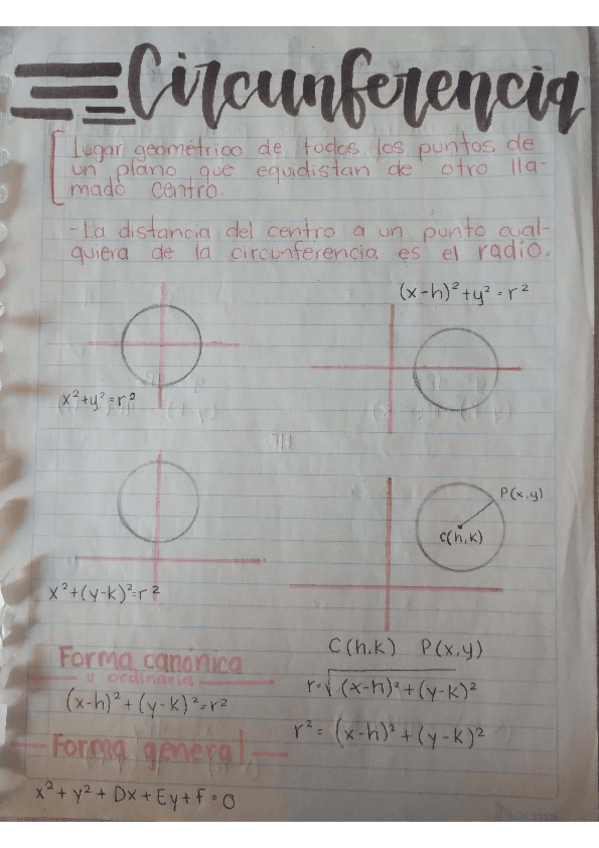 Circunferencia
Lugar geométrico de todos los puntos de
un plano que equidistan de otro lla-
mado centro.
-La distancia del centro a un punto cual-
quiera de la circunferencia es el radio.
(x-h)²+y²=r²
x²+y²=r²
P(x,y)
C(h,k)
x²+(y-k)²=r²
C(h,k) P(x,y)
Forma canónica
u ordinaria
r=√(x-h)²+(y-k)²
(x-h)²+(y-k)²=r²
r²=(x-h)²+(y-k)²
Forma general
x²+y²+Dx+Ey+F=0